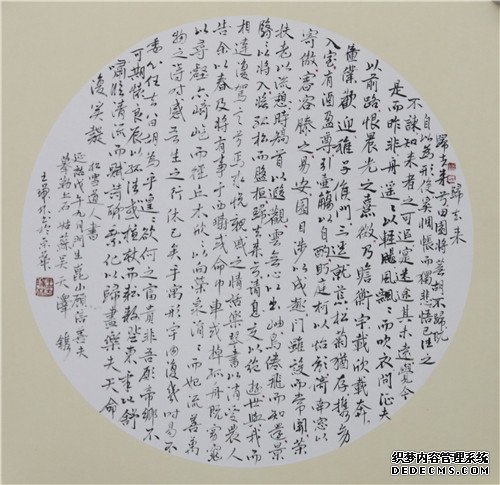 歸去來
歸去來兮田園將蕪胡不歸既
自以心為形役奚惆悵而獨悲悟已往之
不諫知來者之可追實迷途其未遠覺今
是而昨非舟遙遙以輕颺風飄飄而吹衣問征夫
以前路恨晨光之熹微乃瞻衡宇載欣載奔
童僕歡迎稚子候門三逕就荒松菊猶存攜幼
入室有酒盈尊引壺觴以自酌眄庭柯以怡顏倚南窗以
寄傲審容膝之易安園日涉以成趣門雖設而常關策
扶老以流憩時矯首以遐觀雲無心以出岫鳥倦飛而知還景
翳翳以將入撫孤松而盤桓歸去來兮請息交以絕遊世與我而
相遺復駕言兮焉求悅親戚之情話樂琴書以消憂農人
告余以春及將有事于西疇或命巾車或棹孤舟既窈窕
以尋壑亦崎嶇而經丘木欣欣以向榮泉涓涓而始流善萬
物之得時感吾生之行休已矣乎寓形宇內復幾時曷不
委心任去留胡為乎遑遑欲何之富貴非吾願帝鄉不
可期懷良辰以孤往或植杖而耘耔登東皋以舒
嘯臨清流而賦詩聊乘化以歸盡樂夫天命
復奚疑
松雪道人書
延祐戊午年九月門生崑小顧信善夫
摹勒上石姑蘇吳天澤鐫
於京華
织梦内容管理系统
DEDECMS.COM